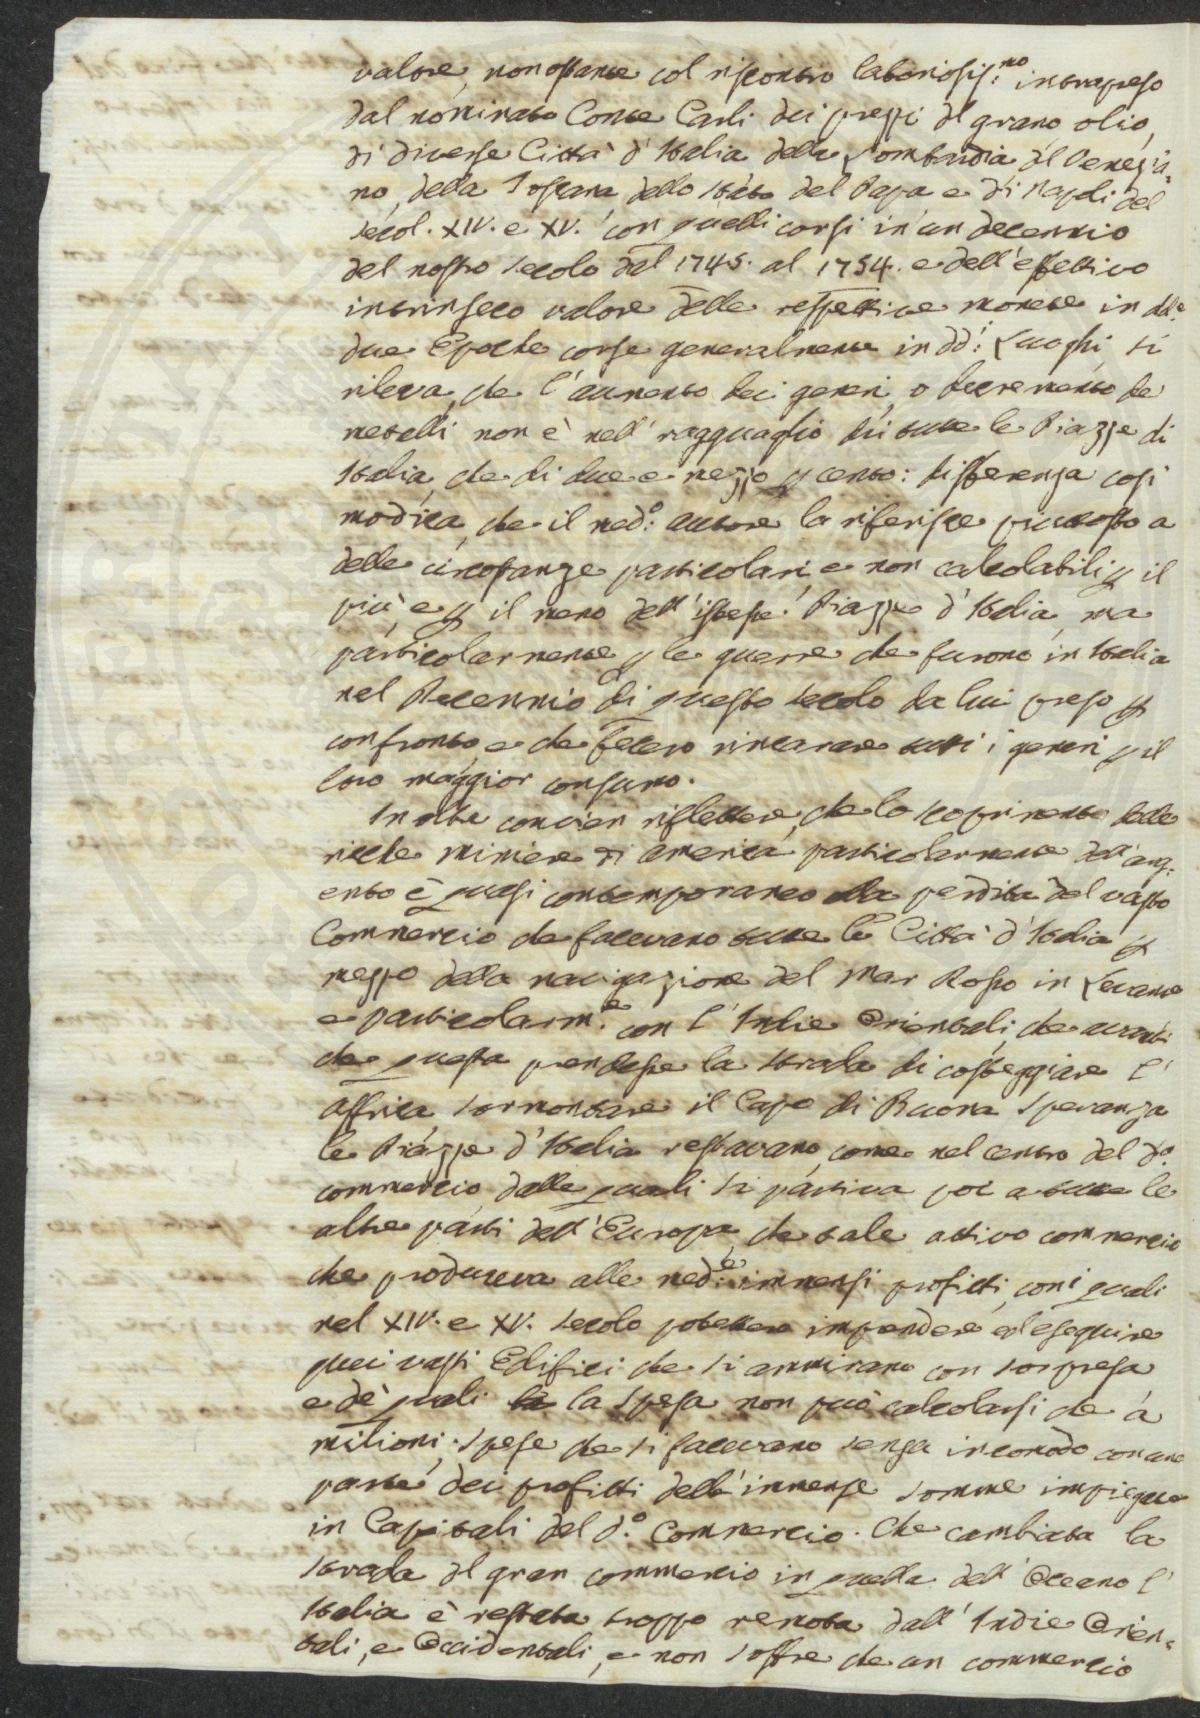 valore, nonostante col riscontro laboriosis:mo intrapreso
dal nominato Conte Carli dei prezzi del grano olio,
di diverse Città d'Italia della Lombardia, del Venezia-
no, della Toscana dello stato del Papa e di Napoli del
secol. XIV. e XV. con quelli corsi in un decennio
del nostro secolo dal 1745. al 1754. e dell'effettivo
intrinseco valore delle respettive monete in dde
due Epoche corse generalmente in dd:i Luoghi si
rileva, che l'aumento dei generi, o decremento de
metalli non è nell'ragguaglio di tutte le Piazze di
Italia, che di due e mezzo p cento: differenza così
modica, che il med:o autore la riferisce piuttosto a
delle circostanze particolari, e non calcolabili p il
più, e p il meno dell'istesse Piazze d'Italia, ma
particolarmente p le guerre che furono in Italia
nel Decennio di questo secolo da lui preso p
confronto e che fecero rincarare tutti i generi p il
loro maggior consumo.
Inoltre convien riflettere, che lo scoprimento delle
ricche miniere di America, particolarmente dell'arg-
ento è quasi contemporaneo alla perdita del vasto
Commercio che facevano tutte le Città d'Italia p
mezzo della navigazione del Mar Rosso in Levante
e particolarm:e con l'Indie Orientali, che avanti
che questa prendesse la strada di costeggiare l'
Affrica sormontare il Capo di Buona Speranza
le Piazze d'Italia restavano, come nel centro del d:o
commercio dalle quali si partiva poi a tutte le
altre parti dell'Europa, che tale attivo commercio
che produceva alle med:e immensi profitti, con i quali
nel XIV. e XV. secolo potettero imprendere ed eseguire
quei vasti Edifici che si ammirano con sorpresa
e de quali la spesa non può calcolarsi che a
milioni; spese che si facevano senza incomodo con una
parte dei profitti dell'immense somme impiegate
in Capitali del d:o Commercio. Che cambiata la
strada del gran commercio in quella dell'Oceano l'
Italia è restata troppo remota dall'Indie Orien-
tali, e Occidentali, e non soffre che un commercio